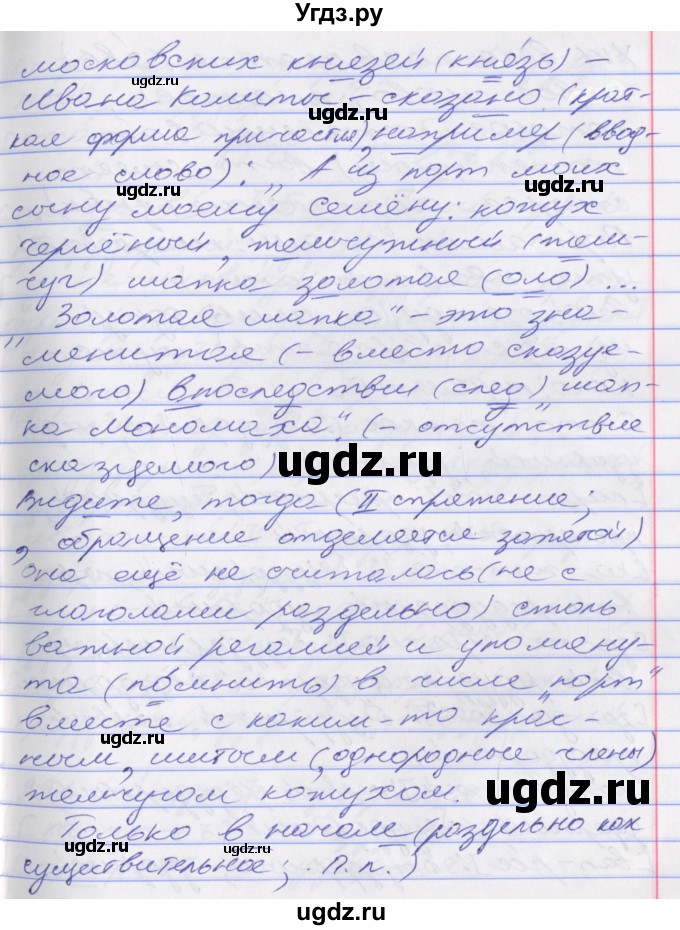 Угдз.ру
московских князей (князь) –
Ивана Калиты – сказано (крат-
кая форма причастия) например (ввод-
ное слово): „А из порт моих
сыну моему Семёну: кожух
черлёный, жемчужный (жем-
чуг) шапка золотая (оло) ...
„Золотая шапка" – это зна-
менитая (– вместо сказуе-
мого) впоследствии (след) „шап-
ка Мономаха". (– отсутствие
сказуемого)
Видите, тогда (II спряжение;
, обращение отделяется запятой)
она ещё не считалась (не с
глаголами раздельно) столь
важной регалией и упомяну-
та (помнить) в числе „порт"
вместе с каким-то крас-
ным, шитым (однородные члены)
жемчугом кожухом.
Только в начале (раздельно как
существительное; П.п.)
ugdz.ru
ugdz.ru
ugdz.ru
ugdz.ru
ugdz.ru
ugdz.ru
ugdz.ru
ugdz.ru
ugdz.ru
ugdz.ru
ugdz.ru
ugdz.ru
ugdz.ru